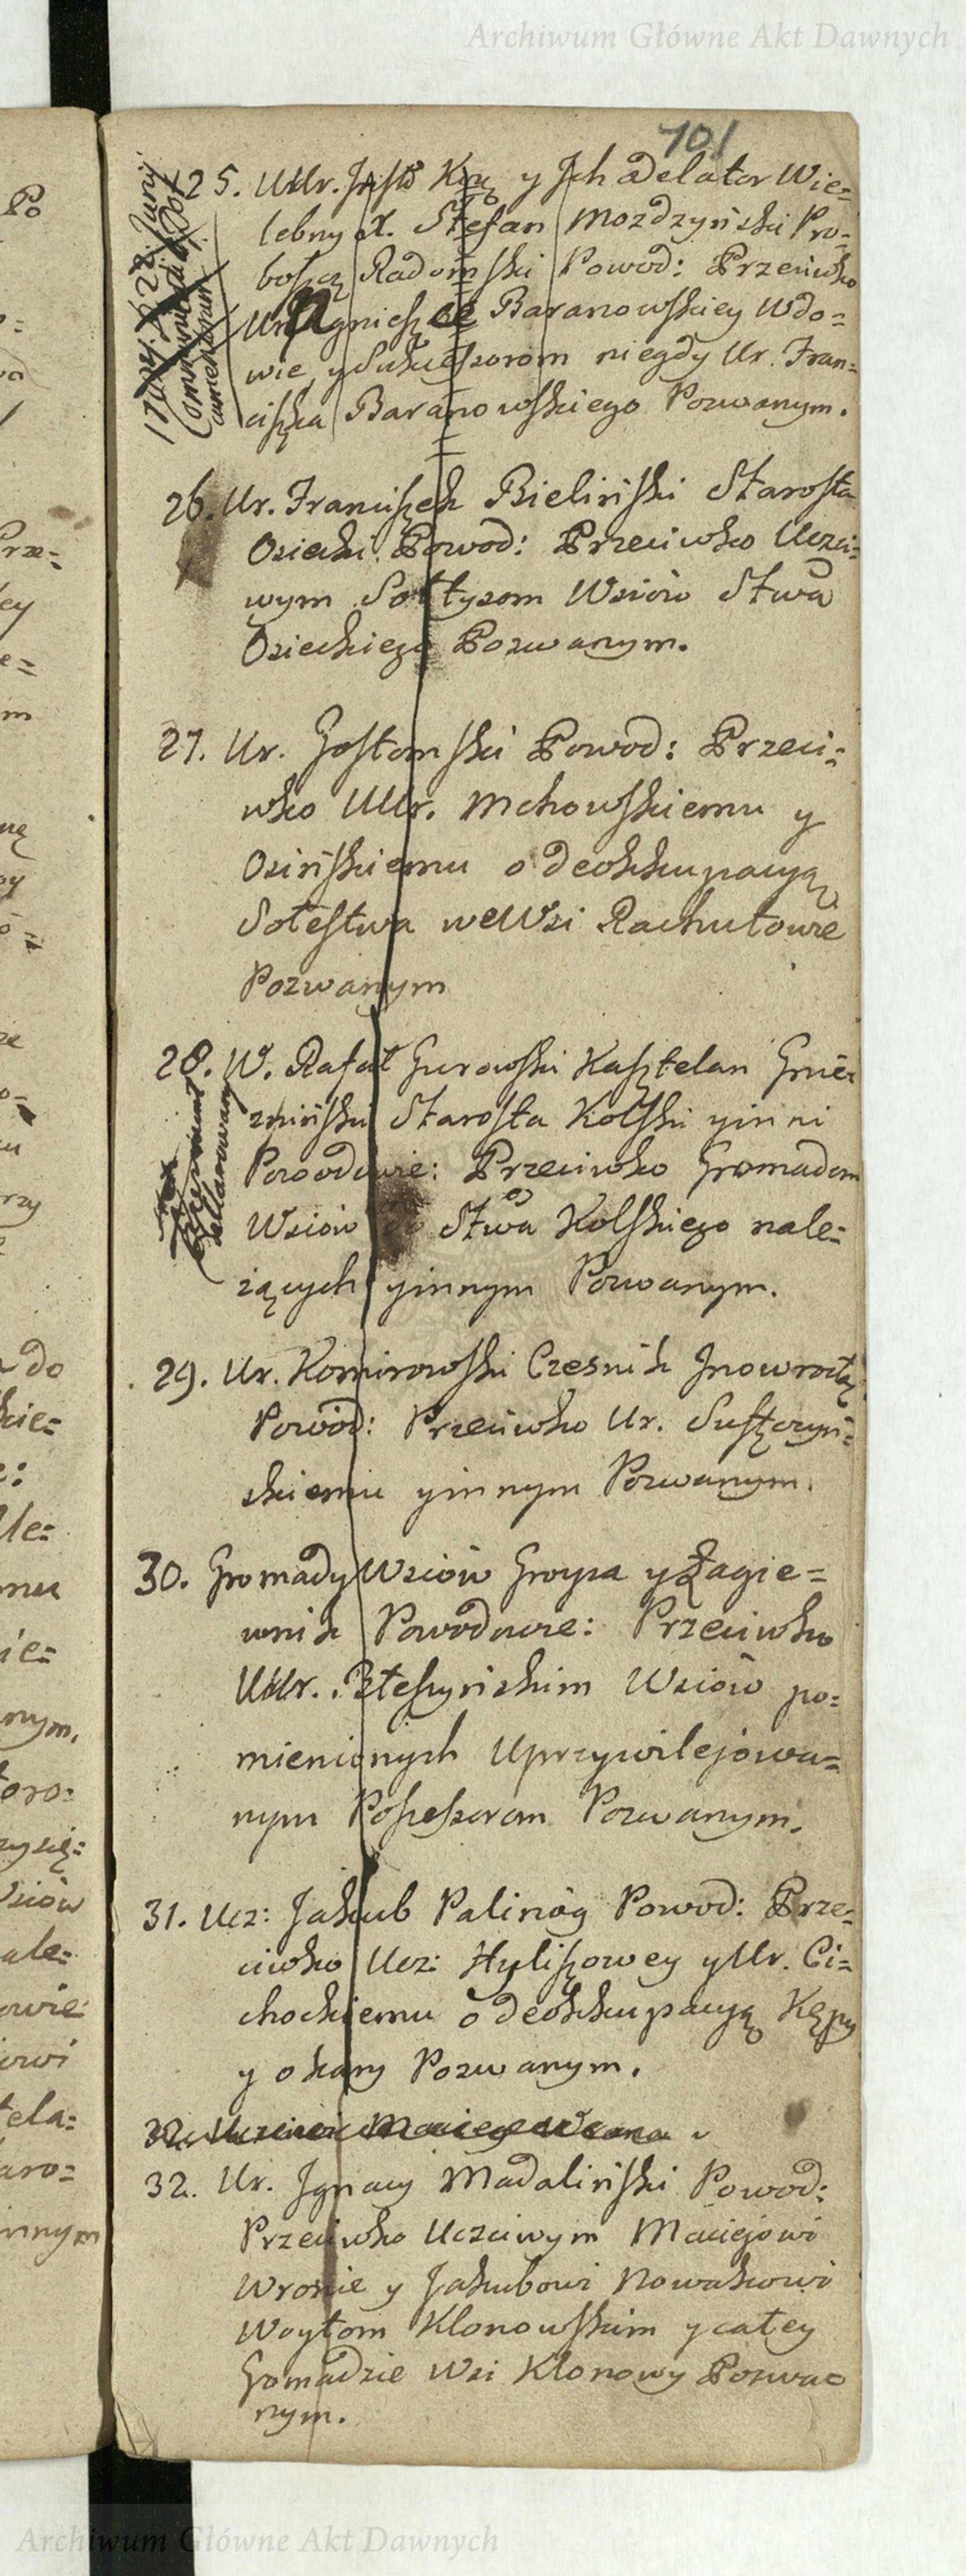 Archiwum Główne Akt Dawnych
101
25. UUr. Jnsto Kcy y Jch Delator Wie=
lebny X. Stefan Mozdzyński Pro=
boszcz Radomski Powod: Przeciwko
Ur. Agnieszce Baranowskiey Wdo=
wie, y Sukcessorom niegdy Ur. Fran=
ciszka Baranowskiego Pozwanym.
26. Ur. Franciszek Bieliński Starosta
Osiecki Powod: Przeciwko Uczci=
wym Sołtysom Wsiow Stwa
Osieckiego Pozwanym.
27. Ur. Gostomski Powod: Przeci=
wko UUr. Mchowskiemu y
Osińskiemu o deokkupacyą
Sołestwa we Wsi Rachutowie
Pozwanym
28. W. Rafał Gurowski Kasztelan Gnie=
zninski Starosta Kolski y inni
Powodowie: Przeciwko Gromadom
Wsiow do Stwa Kolskiego nale=
żących y innym Pozwanym.
29. Ur. Komirowski Czesnik Jnowrocła:
Powod: Przeciwko Ur. Suszczyń=
skiemu y innym Pozwanym.
30. Gromady Wsiow Groysa y Łagie=
wnik Powodowie: Przeciwko
UUr. Błeszyńskim Wsiow po=
mienionych Uprzywilejowa=
nym Possessorom Pozwanym.
31. Ucz: Jakub Palinóg Powod: Prze=
ciwko Ucz: Hyliszowey y Ur. Ci=
chockiemu o deokkupacyą Kępy
y o kary Pozwanym.
32. Ur. Jgnacy Madaliński Powod:
Przeciwko Uczciwym Maciejowi
Wronie y Jakubowi Nowakowi
Woytom Klonowskim y całey
Gromadzie Wsi Klonowy Pozwa=
nym.
Archiwum Główne Akt Dawnych